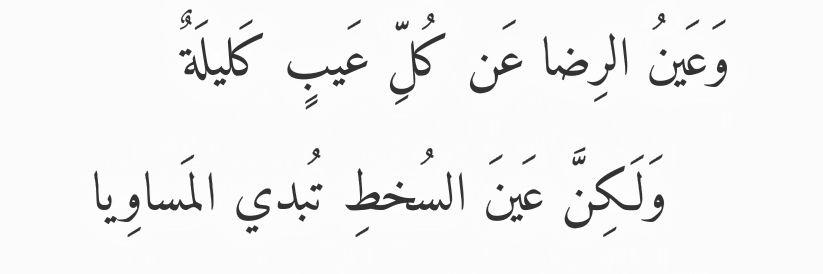 وَعَينُ الرِضا عَن كُلِّ عَيبٍ كَليلَةٌ
وَلَكِنَّ عَينَ السُخطِ تُبدي المَساوِيا